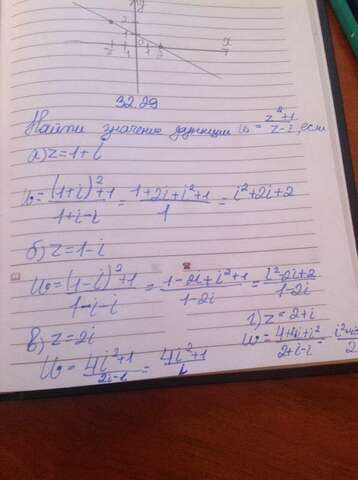 32.29
Найти значение функции w = (z²+1)/(z-i) если
а) z=1+i
w = ((1+i)²+1)/(1+i-i) = (1+2i+i²+1)/1 = i²+2i+2
б) z=1-i
w = ((1-i)²+1)/(1-i-i) = (1-2i+i²+1)/(1-2i) = (i²-2i+2)/(1-2i)
в) z=2i
w = (4i²+1)/(2i-1) = (4i²+1)/
г) z=2+i
w = (4+4i+i²)/(2+i-i) =